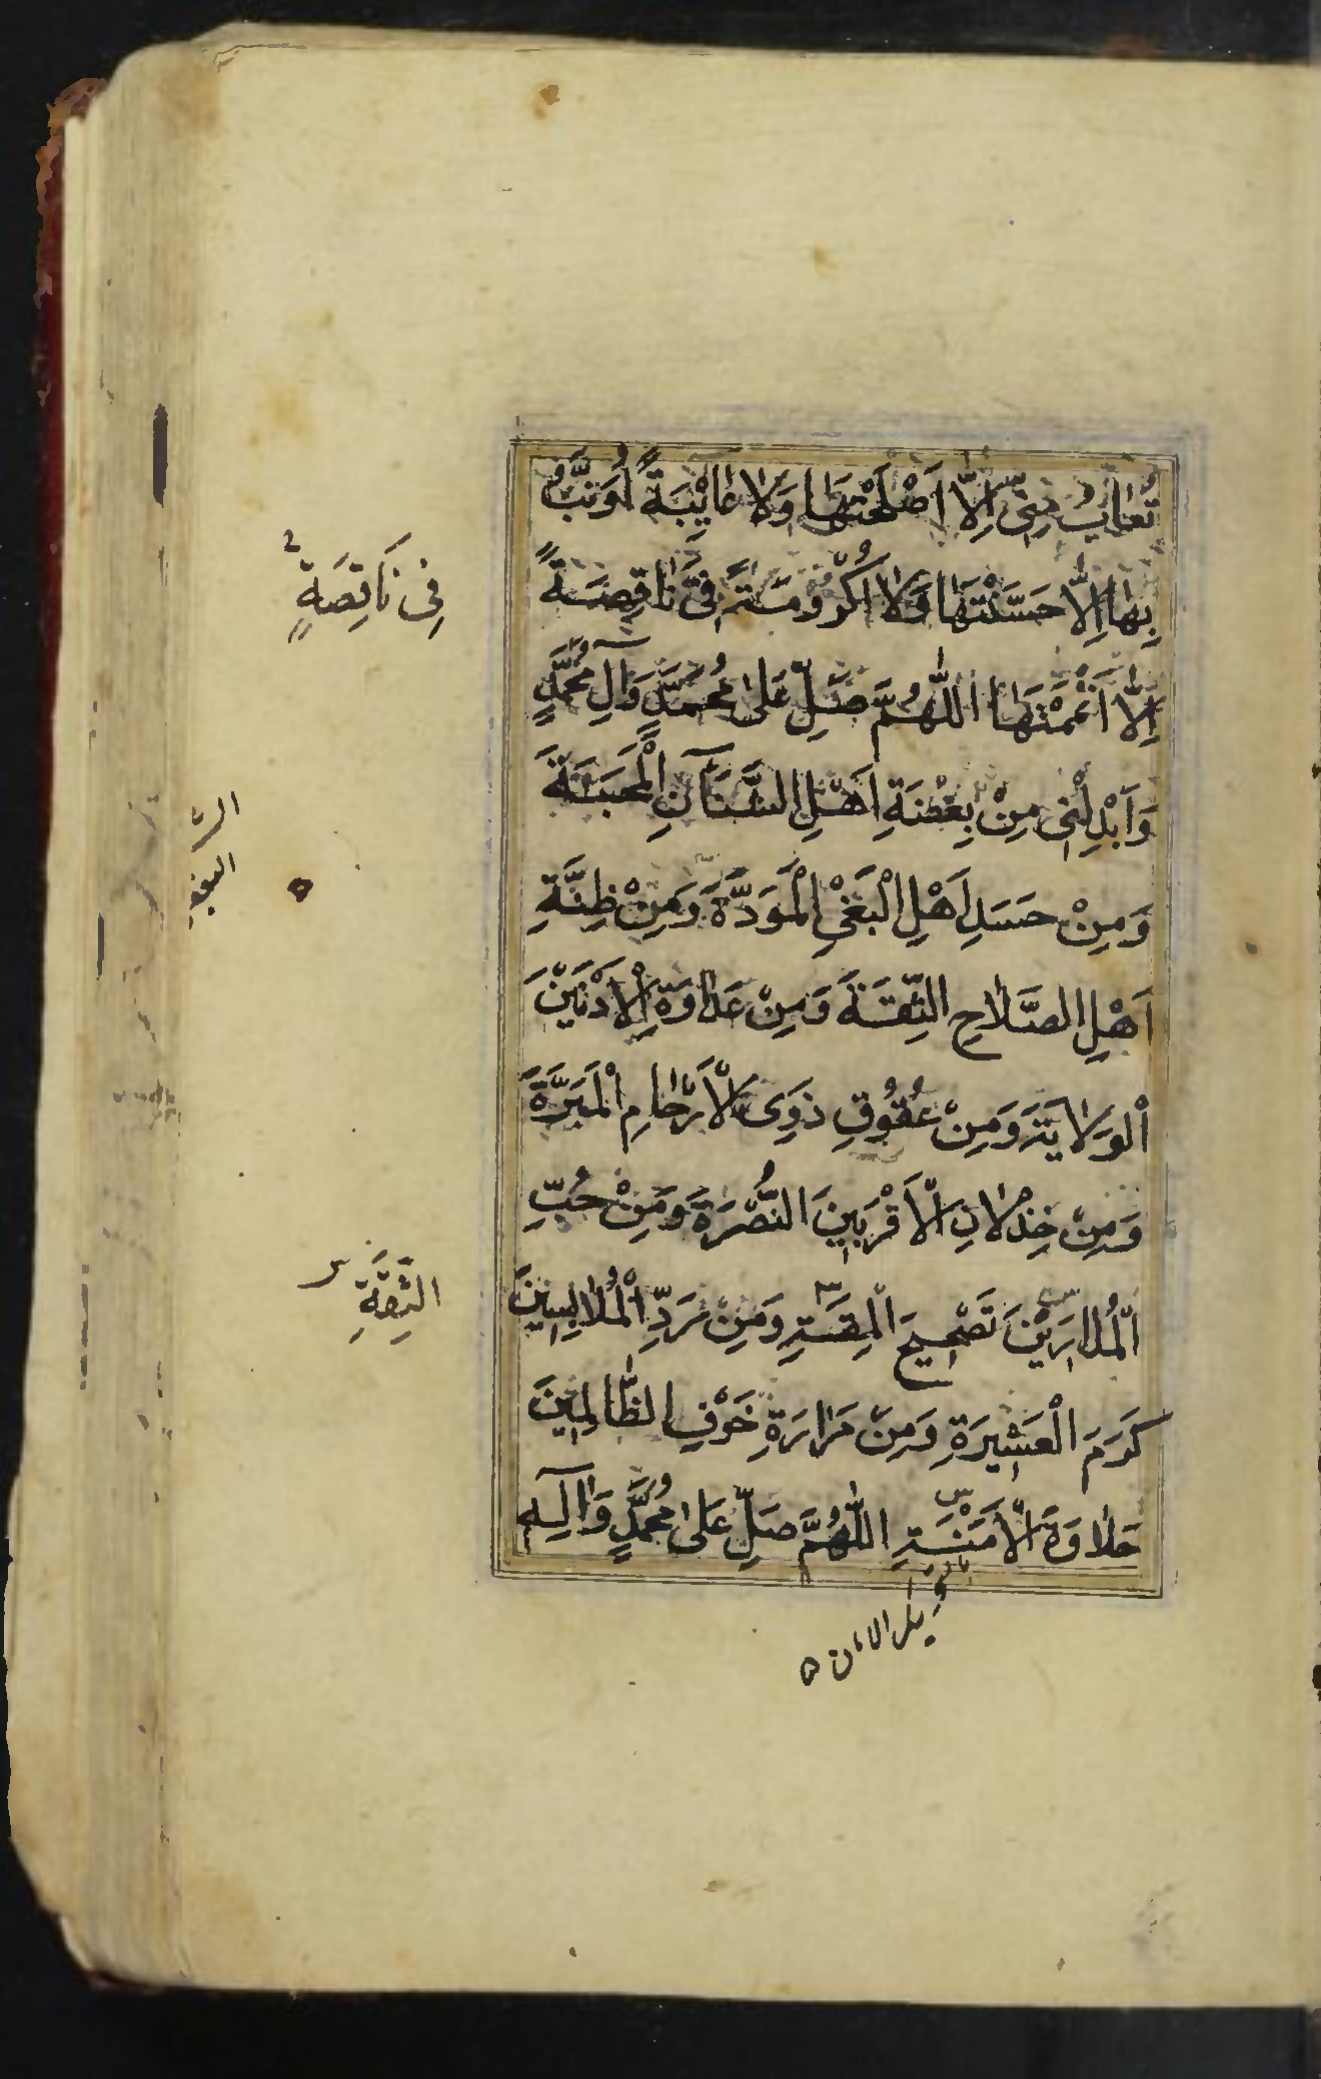 تُعَابُ مِنِّي اِلَّا اَصْلَحْتَهَا وَلَا عَايِبَةً اُوَنَّبُ
بِهَا اِلَّا حَسَّنْتَهَا وَلَا اُكْرُومَةً فِيَّ نَاقِصَةً
اِلَّا اَتْمَمْتَهَا اَللّٰهُمَّ صَلِّ عَلٰى مُحَمَّدٍ وَآلِ مُحَمَّدٍ
وَاَبْدِلْنِي مِنْ بِغْضَةِ اَهْلِ الشَّنَآنِ الْمَحَبَّةَ
وَمِنْ حَسَدِ اَهْلِ الْبَغْيِ الْمَوَدَّةَ وَمِنْ ظِنَّةِ
اَهْلِ الصَّلَاحِ الثِّقَةَ وَمِنْ عَدَاوَةِ الْاَدْنَيْنَ
الْوَلَايَةَ وَمِنْ عُقُوقِ ذَوِي الْاَرْحَامِ الْمَبَرَّةَ
وَمِنْ خِذْلَانِ الْاَقْرَبِينَ النُّصْرَةَ وَمِنْ حُبِّ
الْمُدَارِينَ تَصْحِيحَ الْمِقَةِ وَمِنْ رَدِّ الْمُلَابِسِينَ
كَرَمَ الْعَشِيرَةِ وَمِنْ مَرَارَةِ خَوْفِ الظَّالِمِينَ
حَلَاوَةَ الْاَمَنَةِ اَللّٰهُمَّ صَلِّ عَلٰى مُحَمَّدٍ وَآلِهِ
فِي نَاقِصَةٍ
الثِّقَةِ